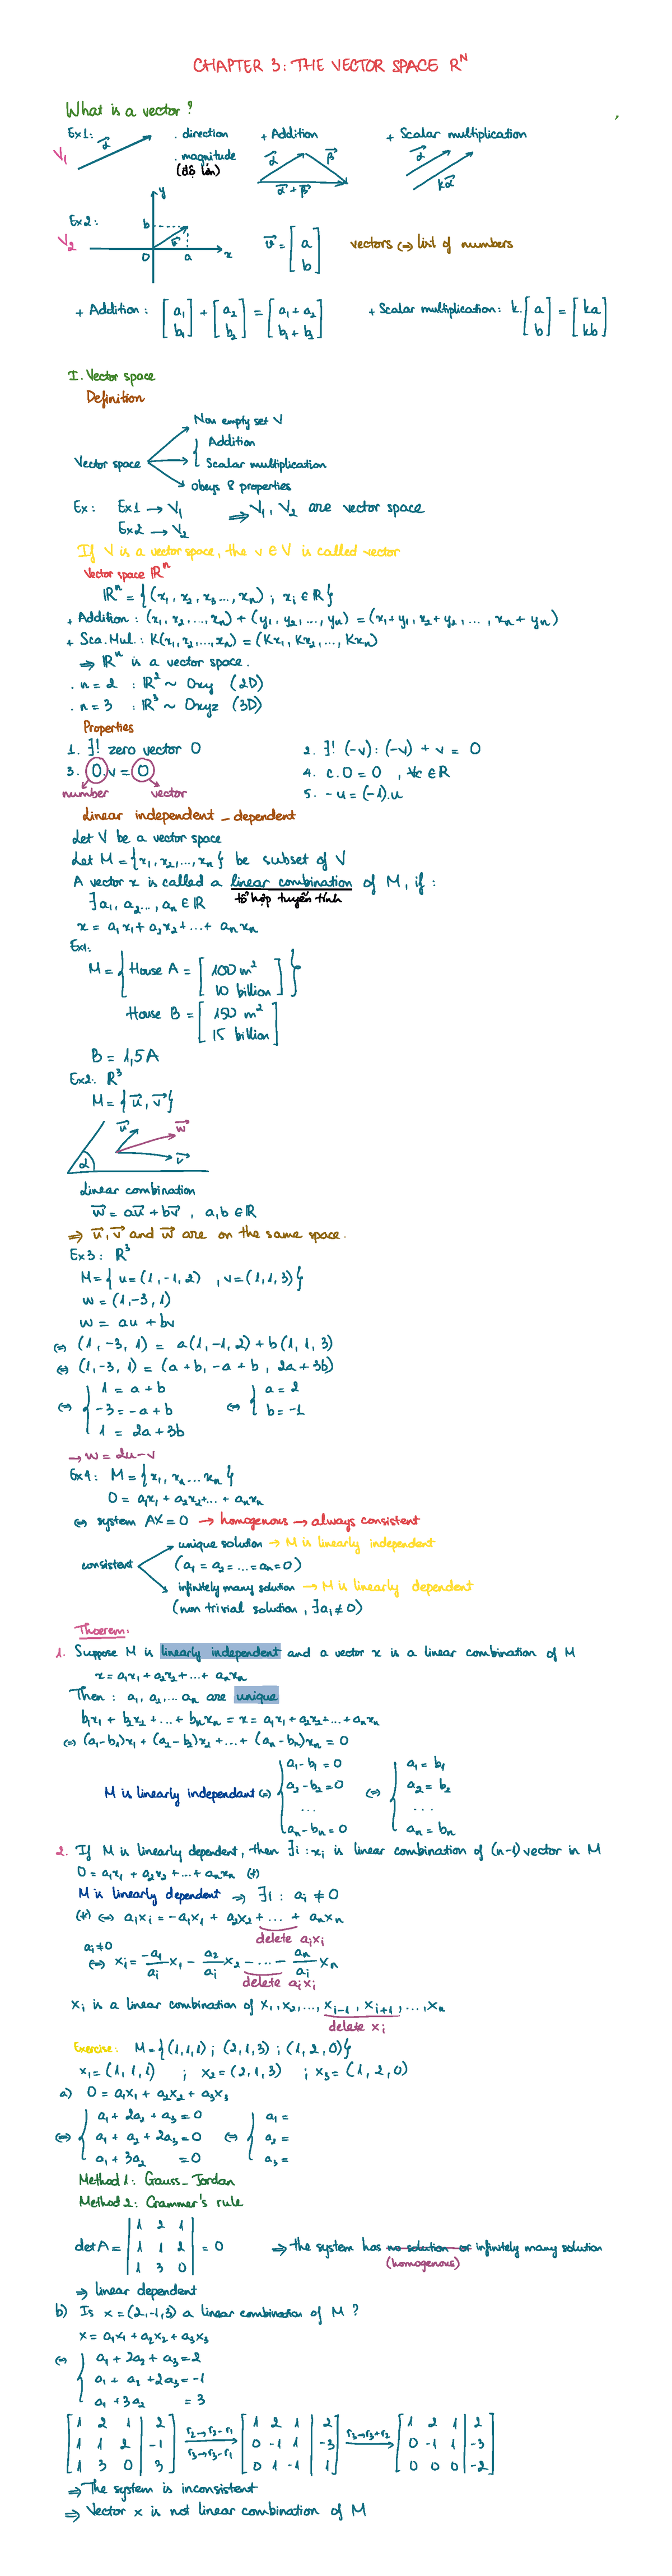 CHAPTER 3: THE VECTOR SPACE R^N
What is a vector?
Ex1: α⃗ . direction + Addition + Scalar multiplication
V₁ . magnitude α⃗ β⃗ α⃗
(độ lớn) α⃗ + β⃗ kα⃗
y
Ex2: b
V₂ v⃗ v⃗ = [a b] vectors ⇔ list of numbers
O a x
+ Addition: [a₁ b₁] + [a₂ b₂] = [a₁ + a₂ b₁ + b₂] + Scalar multiplication: k.[a b] = [ka kb]
I. Vector space
Definition
Non empty set V
Addition
Vector space Scalar multiplication
obeys 8 properties
Ex: Ex1 → V₁ ⇒ V₁, V₂ are vector space
Ex2 → V₂
If V is a vector space, the v ∈ V is called vector
Vector space ℝⁿ
ℝⁿ = {(x₁, x₂, x₃ ..., xₙ); xᵢ ∈ ℝ}
+ Addition: (x₁, x₂, ..., xₙ) + (y₁, y₂, ..., yₙ) = (x₁+y₁, x₂+y₂, ..., xₙ + yₙ)
+ Sca.Mul.: K(x₁, x₂, ..., xₙ) = (Kx₁, Kx₂, ..., Kxₙ)
⇒ ℝⁿ is a vector space.
. n = 2 : ℝ² ~ Oxy (2D)
. n = 3 : ℝ³ ~ Oxyz (3D)
Properties
1. ∃! zero vector 0 2. ∃! (-v): (-v) + v = 0
3. 0.v = 0 4. c.0 = 0 , ∀c ∈ R
number vector 5. -u = (-1).u
Linear independent _ dependent
Let V be a vector space
Let M = {x₁, x₂, ..., xₙ} be subset of V
A vector x is called a linear combination of M, if:
∃a₁, a₂ ..., aₙ ∈ ℝ tổ hợp tuyến tính
x = a₁x₁ + a₂x₂ + ... + aₙxₙ
Ex1:
M = {House A = [100 m² 10 billion]}
House B = [150 m² 15 billion]
B = 1,5A
Ex2: ℝ³
M = {u⃗, v⃗}
u⃗ w⃗
α v⃗
Linear combination
w⃗ = au⃗ + bv⃗ , a,b ∈ ℝ
⇒ u⃗, v⃗ and w⃗ are on the same space.
Ex3: ℝ³
M = {u = (1, -1, 2) , v = (1, 1, 3)}
w = (1, -3, 1)
w = au + bv
⇔ (1, -3, 1) = a(1, -1, 2) + b(1, 1, 3)
⇔ (1, -3, 1) = (a + b, -a + b, 2a + 3b)
1 = a + b a = 2
⇔ -3 = -a + b ⇔ b = -1
1 = 2a + 3b
→ w = 2u - v
Ex4: M = {x₁, x₂ ... xₙ}
0 = a₁x₁ + a₂x₂ + ... + aₙxₙ
⇔ system AX = 0 → homogenous → always consistent
unique solution → M is linearly independent
consistent (a₁ = a₂ = ... = aₙ = 0)
infinitely many solution → M is linearly dependent
(non trivial solution, ∃aᵢ ≠ 0)
Thoerem:
1. Suppose M is linearly independent and a vector x is a linear combination of M
x = a₁x₁ + a₂x₂ + ... + aₙxₙ
Then: a₁, a₂, ... aₙ are unique
b₁x₁ + b₂x₂ + ... + bₙxₙ = x = a₁x₁ + a₂x₂ + ... + aₙxₙ
⇔ (a₁-b₁)x₁ + (a₂-b₂)x₂ + ... + (aₙ-bₙ)xₙ = 0
a₁ - b₁ = 0 a₁ = b₁
M is linearly independant ⇔ a₂ - b₂ = 0 ⇔ a₂ = b₂
... ...
aₙ - bₙ = 0 aₙ = bₙ
2. If M is linearly dependent, then ∃i: xᵢ is linear combination of (n-1) vector in M
0 = a₁x₁ + a₂x₂ + ... + aₙxₙ (*)
M is linearly dependent ⇒ ∃i: aᵢ ≠ 0
(*) ⇔ aᵢxᵢ = -a₁x₁ + a₂x₂ + ... + aₙxₙ
delete aᵢxᵢ
aᵢ≠0 ⇔ xᵢ = -a₁/aᵢ x₁ - a₂/aᵢ x₂ - ... - aₙ/aᵢ xₙ
delete aᵢxᵢ
xᵢ is a linear combination of x₁, x₂, ..., xᵢ₋₁, xᵢ₊₁, ..., xₙ
delete xᵢ
Exercise: M = {(1,1,1); (2,1,3); (1,2,0)}
x₁ = (1, 1, 1) ; x₂ = (2,1,3) ; x₃ = (1, 2, 0)
a) 0 = a₁x₁ + a₂x₂ + a₃x₃
a₁ + 2a₂ + a₃ = 0 a₁ =
⇔ a₁ + a₂ + 2a₃ = 0 ⇔ a₂ =
a₁ + 3a₂ = 0 a₃ =
Method 1: Gauss_Jordan
Method 2: Crammer's rule
1 2 1
det A = 1 1 2 = 0 ⇒ the system has no solution or infinitely many solution
1 3 0 (homogenous)
⇒ linear dependent
b) Is x = (2,-1,3) a linear combination of M?
x = a₁x₁ + a₂x₂ + a₃x₃
a₁ + 2a₂ + a₃ = 2
⇔ a₁ + a₂ + 2a₃ = -1
a₁ + 3a₂ = 3
1 2 1 | 2 r₂→r₂-r₁ 1 2 1 | 2 r₃→r₃+r₂ 1 2 1 | 2
1 1 2 | -1 0 -1 1 | -3 0 -1 1 | -3
1 3 0 | 3 r₃→r₃-r₁ 0 1 -1 | 1 0 0 0 | -2
⇒ The system is inconsistent
⇒ Vector x is not linear combination of M